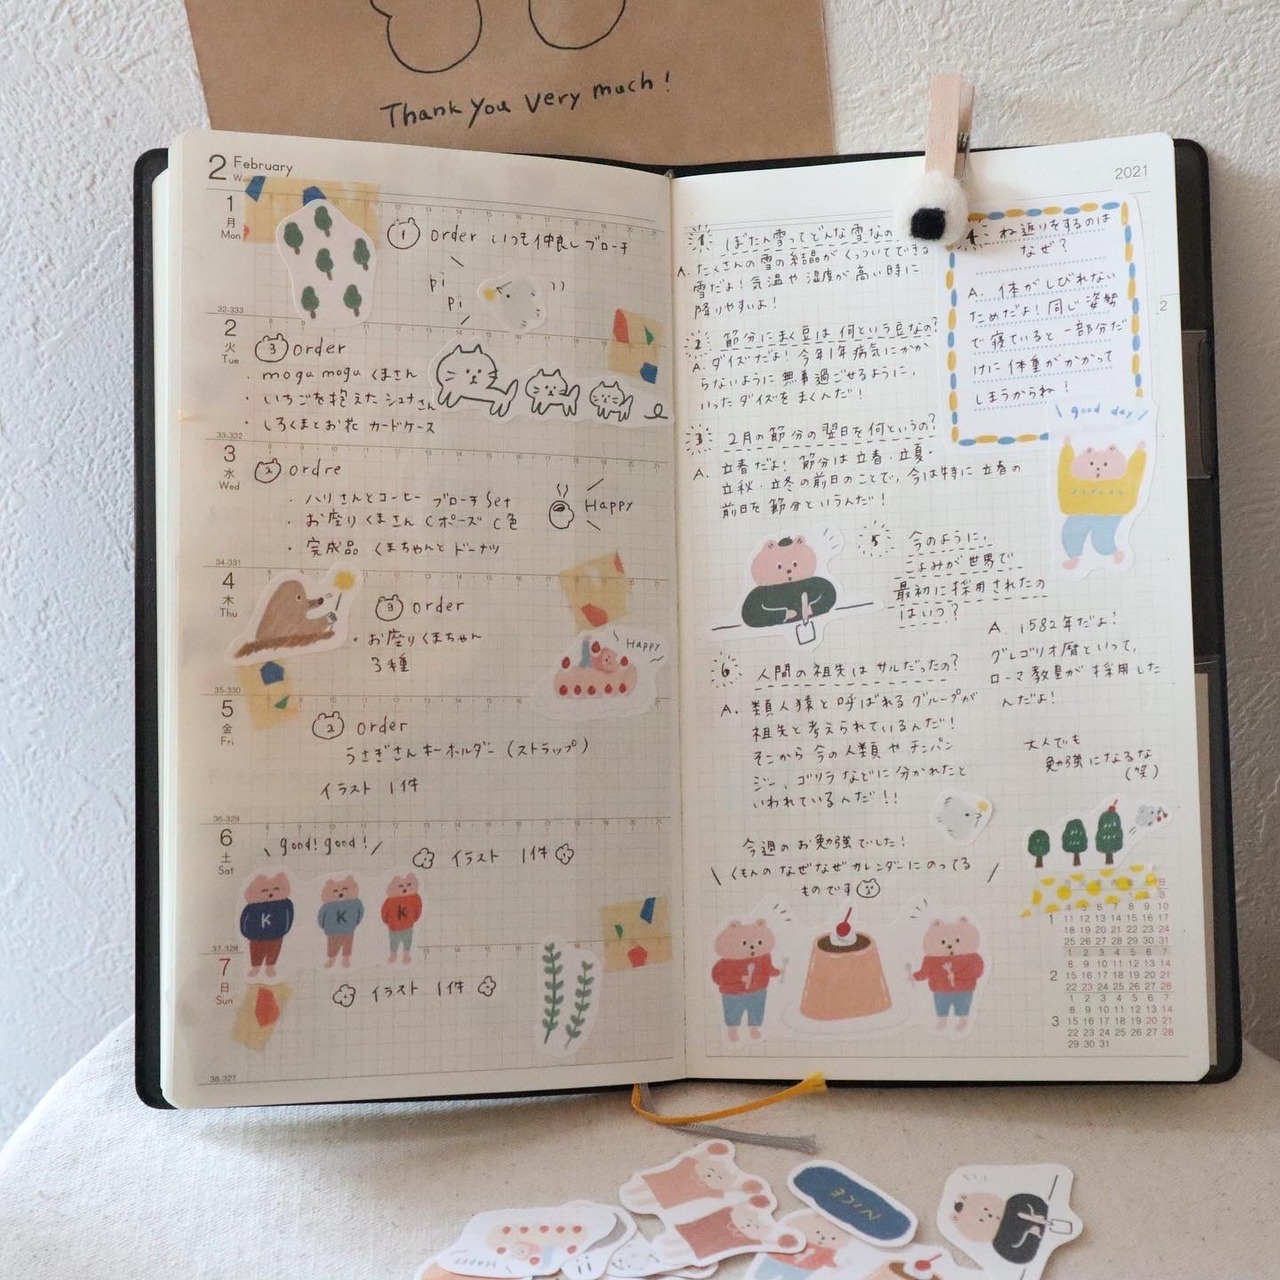 Thank you very much!
2 February
W
1
月
Mon
① order いつも仲良しブローチ
pi
pi
32-333
2
火
Tue
③ order
・mogu mogu くまさん
・いちごを抱えたシュナさん
・しろくまとお花 カードケース
33-332
3
水
Wed
② ordre
・ハリさんとコーヒー ブローチ Set
・お座りくまさん Cポーズ C色
・完成品 くまちゃんとドーナツ
Happy
34-331
4
木
Thu
③ order
・お座りくまちゃん
3種
Happy
35-330
5
金
Fri
② order
うさぎさんキーホルダー (ストラップ)
イラスト 1件
36-329
6
土
Sat
good! good!
イラスト 1件
K
K
K
37-328
7
日
Sun
イラスト 1件
38-327
2021
1 ぼたん雪ってどんな雪なの
A. たくさんの雪の結晶がくっついてできる
雪だよ!気温や湿度が高い時に
降りやすいよ!
2 節分にまく豆は何という豆なの?
A. ダイズだよ!今年1年病気にかか
らないように無事過ごせるように、
いったダイズをまくんだ!
3 2月の節分の翌日を何というの?
A. 立春だよ!節分は立春・立夏・
立秋・立冬の前日のことで、今は特に立春の
前日を節分というんだ!
4 ね返りをするのは
なぜ?
A. 体がしびれない
ためだよ!同じ姿勢
で寝ていると一部分だ
けに体重がかかって
しまうからね!
good day
5 今のように、
こよみが世界で
最初に採用されたの
はいつ?
A. 1582年だよ!
グレゴリオ暦といって、
ローマ教皇が採用した
んだよ!
6 人間の祖先はサルだったの?
A. 類人猿と呼ばれるグループが
祖先と考えられているんだ!
そこから今の人類やチンパン
ジー、ゴリラなどに分かれたと
いわれているんだ!!
大人でも
勉強になるな
(笑)
今週のお勉強でした!
くもんのなぜなぜカレンダーにのってる
ものです
日
3
4 5 6 7 8 9 10
1 11 12 13 14 15 16 17
18 19 20 21 22 23 24
25 26 27 28 29 30 31
1 2 3 4 5 6 7
8 9 10 11 12 13 14
2 15 16 17 18 19 20 21
22 23 24 25 26 27 28
1 2 3 4 5 6 7
8 9 10 11 12 13 14
3 15 16 17 18 19 20 21
22 23 24 25 26 27 28
29 30 31
2
NICE
Happy